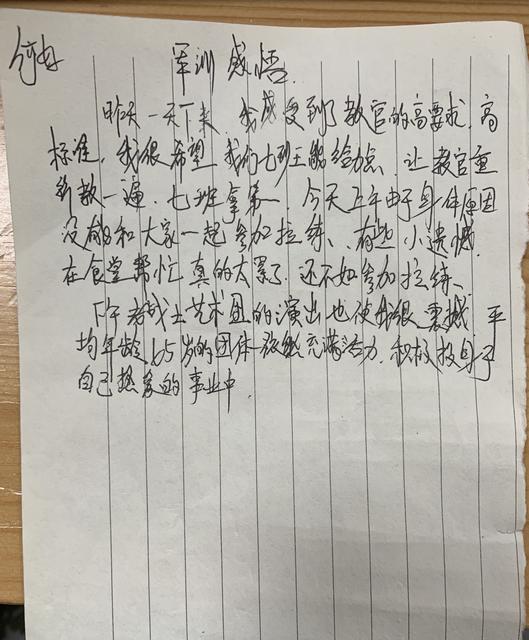 军训感悟
昨天一天下来,我感受到了教官的高要求,高
标准,我很希望我们七班能给力点,让教官重
新教一遍,七班拿第一,今天上午由于身体原因
没能和大家一起参加拉练,有些小遗憾,
在食堂帮忙真的太累了,还不如参加拉练、
下午老战士艺术团的演出也使我很震撼,平
均年龄65岁的团体依然充满活力,积极投身于
自己热爱的事业中